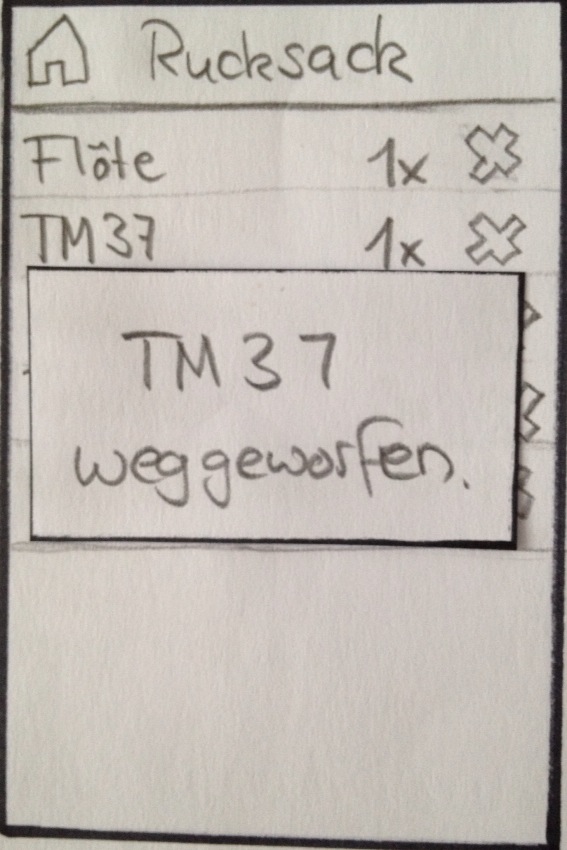 Rucksack
Flöte 1x
TM37 1x
TM37
weggeworfen.